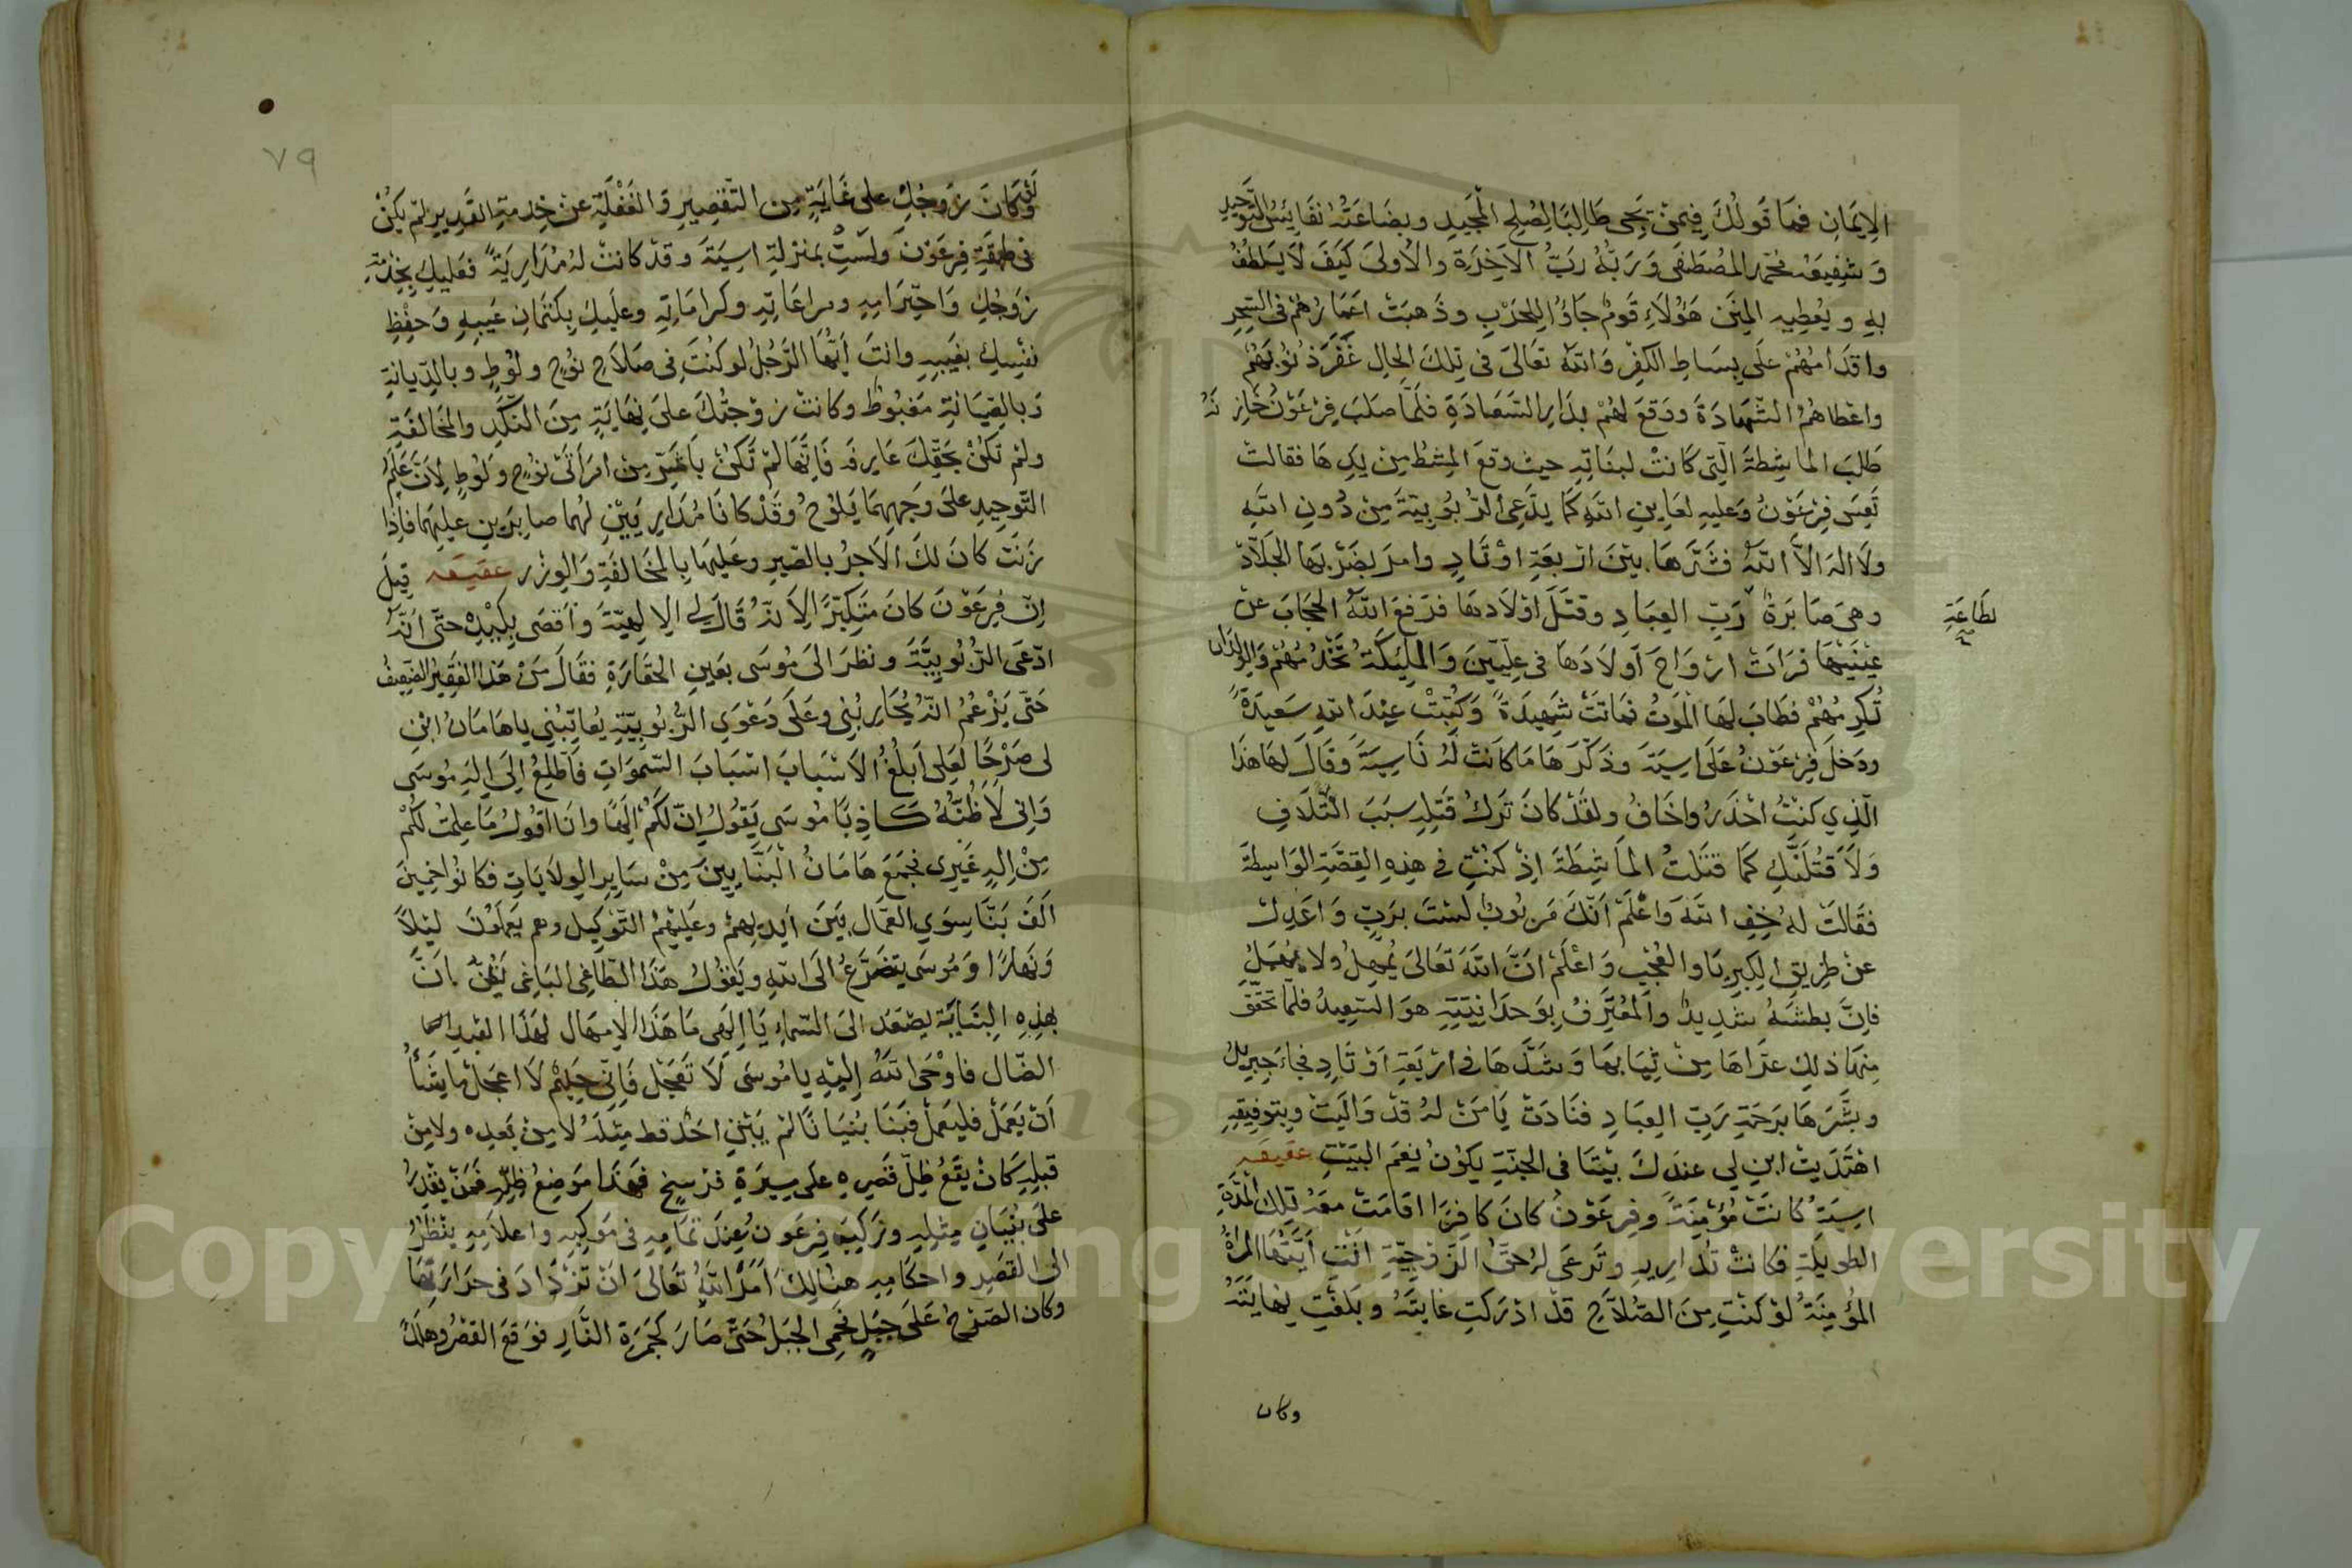 الإيمَانِ فمَا قَولُكَ فِيمَنْ يَجِي طَالِبًا لِصُلحِ المَجِيدِ وبِضَاعَتُهُ نفَائِسُ التَّوحِيدِ
وَشَفِيعُهُ مُحَمَّدٌ المُصْطَفَى وَرَبُّهُ رَبُّ الآخِرَةِ والأُولَى كَيَفَ لَا يَلطُفُ
بِهِ وَيُعْطِيهِ المِنَنَ هَؤُلَاءِ قَومٌ جَاؤُا لِلحَرْبِ وذَهبَتْ اعْمَارُهُمْ في السِّحْرِ
واقدَامُهُمْ علَى بِسَاطِ الكُفْرِ وَاللهُ تعَالَى في تِلكَ الحَالِ غَفَرَ ذُنُوبَهُمْ
واعْطاهُمُ الشَّهَادَةَ ووَقعَ لهُمْ بدَارِ السَّعَادَةِ فلَمَّا صلَبَ فِرْعَوْنُ خَازِنَهُ
طَلبَ المَاشِطَةَ الَّتِي كَانَتْ لبنَاتِهِ حيثُ وقعَ المِشطُ مِنْ يدِهَا فقالتْ
تَعِسَ فِرْعَوْنُ وَعليهِ لعَاينُ اللهِ كَمَا يدَّعِي الرُّبُوبِيَّةَ مِنْ دُونِ اللهِ
ولَا الهَ الاَّ اللهُ فشَرَّهَا بيْنَ ارْبعَةِ اوْتَادٍ وامرَ بضَرْبِهَا الجَلّادَ
وهيَ صَابرَةٌ رَبِّ العِبَادِ وقتَلَ اوْلَادهَا فرَفعَ اللهُ الحِجَابَ عنْ
لطَاعَةِ
عيْنَيْهَا فرَاتْ ارْوَاحَ أوْلَادِهَا في عِلِّيّينَ وَالمَلِيكَةُ تَخْدُمُهُمْ وَالوِلدَانُ
تُكرِمُهُمْ فطَابَ لهَا المَوْتُ فمَاتَتْ شَهِيدَةً وَكُتِبَتْ عِنْدَ اللهِ سَعِيدَةً
ودَخلَ فِرْعَوْنُ عَلَى اسِيَةَ وذكَّرَهَا مَا كَانَتْ لَهُ نَاسِيَةً وَقَالَ لهَا هذَا
الّذِي كنْتُ احْذَرُ واخَافُ ولقَدْ كانَ تَرْكُ قَتْلِهِ سبَبَ التّلَافِ
وَلَأَقتُلنَّكِ كَمَا قتَلتُ المَاشِطَةَ اِذْ كنْتِ في هذِهِ القِصَّةِ الوَاسِطَةَ
فقَالَتْ لهُ خِفِ اللهَ وَاعْلَمْ انَّكَ مَرْبُوبٌ لسْتَ برَبٍّ وَاعدِلْ
عنْ طَرِيقِ الكِبْرِيَا والعُجْبِ وَاعْلمْ انَّ اللهَ تَعَالَى يُمْهِلُ ولا يُهْمِلُ
فاِنَّ بطْشَهُ شدِيدٌ وَالمُعْتَرِفُ بِوَحدَانِيَّتِهِ هوَ السَّعِيدُ فلَمّا تَحَقَّقَ
مِنهَا ذلِكَ عرَّاهَا مِنْ ثيَابِهَا وَشدَّهَا في ارْبَعَةِ اوْتَادٍ فجَاءَ جِبريلُ
وبشَّرَهَا برَحمَةِ رَبِّ العِبَادِ فنَادَتْ يَا مَنْ لهُ قدْ وَالَيتُ وبِتَوفِيقِهِ
اهْتَدَيتُ ابنِ لِي عندَكَ بيْتًا في الجنَّةِ يكُونُ نِعْمَ البَيْتِ عقيقه
اسِيَةُ كَانَتْ مُؤْمِنَةً وفِرعَوْنُ كانَ كافِرًا اقامَتْ معَهُ تِلكَ المُدَّةِ
الطوِيلَةِ فكانَتْ تُدارِيهِ وتَرعَى لهُ حقَّ الزّوْجِيَّةِ انْتِ أيَّتُهَا المرْاةُ
المُؤمِنَةُ لوْ كنْتِ مِنَ الصَّلَاحِ قدْ ادْرَكتِ غايتَهُ وبَلغْتِ نِهايتَهُ
وكان
٧٩
وَكَانَ زَوجُكِ علَى غَايَةٍ مِن التَّقصِيرِ وَالغَفْلَةِ عنْ خِدمَةِ القَدِيرِ لمْ يكُنْ
في طبقَةِ فِرعَوْنَ ولسْتِ بمَنزِلةِ اسِيَةَ وقدْ كانتْ لهُ مُدَارِيَةً فعَليكِ بخِدْمَةِ
زَوجِكِ وَاحتِرَامِهِ ومراعَاتِهِ وكرامَاتِهِ وعلَيكِ بكتمَانِ عَيبِهِ وَحِفْظِ
نفْسِكِ بغَيبِهِ وانتَ أيُّهَا الرَّجُلُ لو كنْتَ في صَلَاحِ نوُحٍ ولُوْطٍ وبالدِّيَانَةِ
وَبالصِّيَانةِ مَغبُوطٌ وكانتْ زوْجتُكَ علَى نِهَايَةٍ مِنَ النَّكَدِ والمُخَالفَةِ
ولمْ تكُنْ بحَقِّكَ عَارِفَه فَاِنَّهَا لمْ تكُنْ بأشَرَّ مِنْ امرَأتَيْ نوُحٍ ولُوطٍ لأنَّ عَلَمَ
التَّوحِيدِ علَى وَجهِهِمَا يَلُوْحُ وقَدْ كانَا مُدَارِيَيْنِ لهُما صابِرَينِ عليهِمَا فاِذَا
زنَتْ كانَ لكَ الأجرُ بالصّبرِ وعَليهَا بالمُخَالفَةِ وَالوِزْر عقيقه قِيلَ
اِنَّ فِرعَوْنَ كانَ مُتكَبِّرًا الاَ نّهُ قَالَ لِي الإلهِيَّةَ وأقصَى بكَيْدِهِ حتَّى أنّهُ
ادّعَى الرُّبُوبِيَّةَ ونظرَ الَى مُوسَى بعَينِ الحقَارَةِ فقَالَ مَنْ هذَا الفَقِيرُ الضّعِيفُ
حتّى يَزْعُمُ انّهُ يُحَارِبُنِي وعَلَى دَعْوَى الرُّبُوبِيَّةِ يُعاتِبُنِي ياهَامَانُ ابْنِ
لِي صَرْحًا لعَلِّي أَبلُغُ الأسْبَابَ اسْبَابَ السّموَاتِ فأطّلِعُ اِلَى اِلَهِ مُوسَى
وَاِنِّي لَأَظُنُّهُ كَاذِبًا مُوسَى يَقُولُ اِنّ لكُمْ اِلَهًا وانَا اقُولُ مَا علِمتُ لكُمْ
مِنْ اِلَهٍ غَيرِي فجَمَعَ هَامَانُ البَنَّايينَ مِنْ سَايِرِ الوِلَايَاتِ فكانُوا خمْسِينَ
الَفَ بنَّا سِوَي العمَّالِ بيَنَ أيدِيهِمْ وعَليْهِمُ التَّوكِيل وهم يَعمَلُونَ ليْلًا
ونَهَارًا وَمُوسَى يتَضَرَّعُ الَى اللهِ ويَقُولُ هذَا الطّاغِي البَاغِي يَظُنُّ بأَنَّ
بهذِهِ البنَايَةِ يصْعَدُ الَى السّمَاءِ يَا اِلَهِي مَا هَذَا الاِمهَال لهَذَا العَبدِ
الضّال فاوْحَى اللهُ اِليهِ يا مُوسَى لَا تَعْجَل فَاِنِّي حَلِيْمٌ لَا اعجَلْ مَا يشَأُ
أنْ يَعمَلْ فليَعملْ فبَنَا بُنيَانًا لمْ يَبْنِي احَدٌ قط مِثلَهُ لا مِنْ بَعدِه ولا مِنْ
قبلِهِ كَانْ يَقَعُ ظِلّ قصْرِهِ علَى مسِيرَةِ فرْسَخٍ فهَذَا مَوضِعُ ظِلِّهِ فمَنْ يقْدِرُ
علَى بُنيَانِ مِثلِهِ وَرَكِبَ فِرعَوْنُ عِندَ تَمَامِهِ في مَوكِبِهِ واعلاَمِهِ ينْظُرُ
الَى القَصْرِ واحكامِهِ هنالِكَ أمَرَ اللهُ تعَالَى انْ تزْدَادَ في حرَارَتِهَا
وكان الصّرْحُ عَلَى جَبَلٍ فحَمِيَ الجبَلُ حتّى صَارَ كجَمرَةِ النَّارِ فوَقَعَ القصْرُ وهلَكَ
Copyright © King Saud University